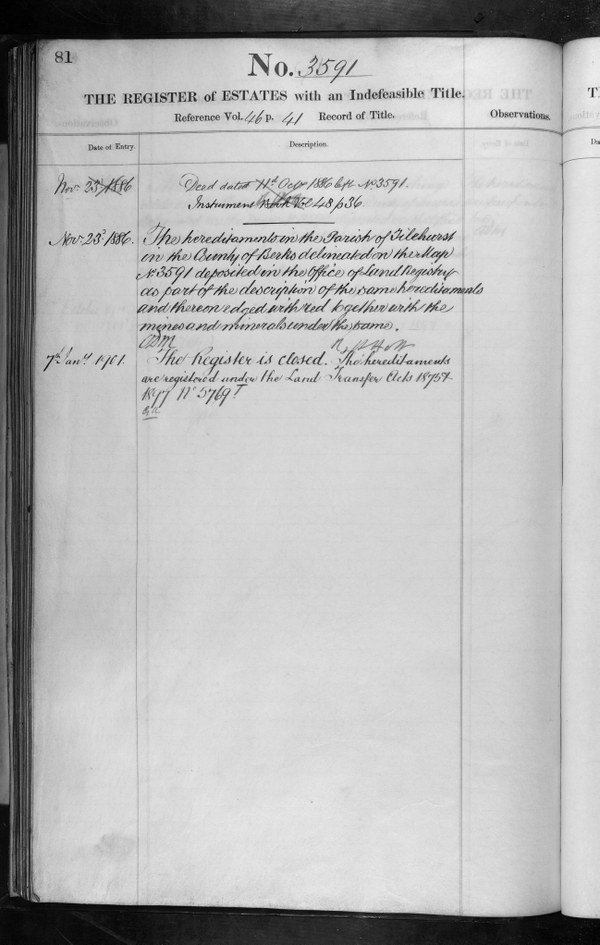 81
No. 3591
THE REGISTER of ESTATES with an Indefeasible Title.
Reference Vol. 46 p. 41 Record of Title.
Observations.
Date of Entry.
Description.
Nov. 23d 1886
Deed dated 11th Octr 1886 left No 3591.
Instrument Book Vol 48 p 36
Nov. 23d 1886.
The hereditaments in the Parish of Tilehurst
in the County of Berks delineated on the Map
No 3591 deposited in the Office of Land Registry
as part of the description of the same hereditaments
and thereon edged with red together with the
mines and minerals under the same.
7th Jany 1901.
The Register is closed. The hereditaments
are registered under the Land Transfer Acts 1875 &
1897 No 5769